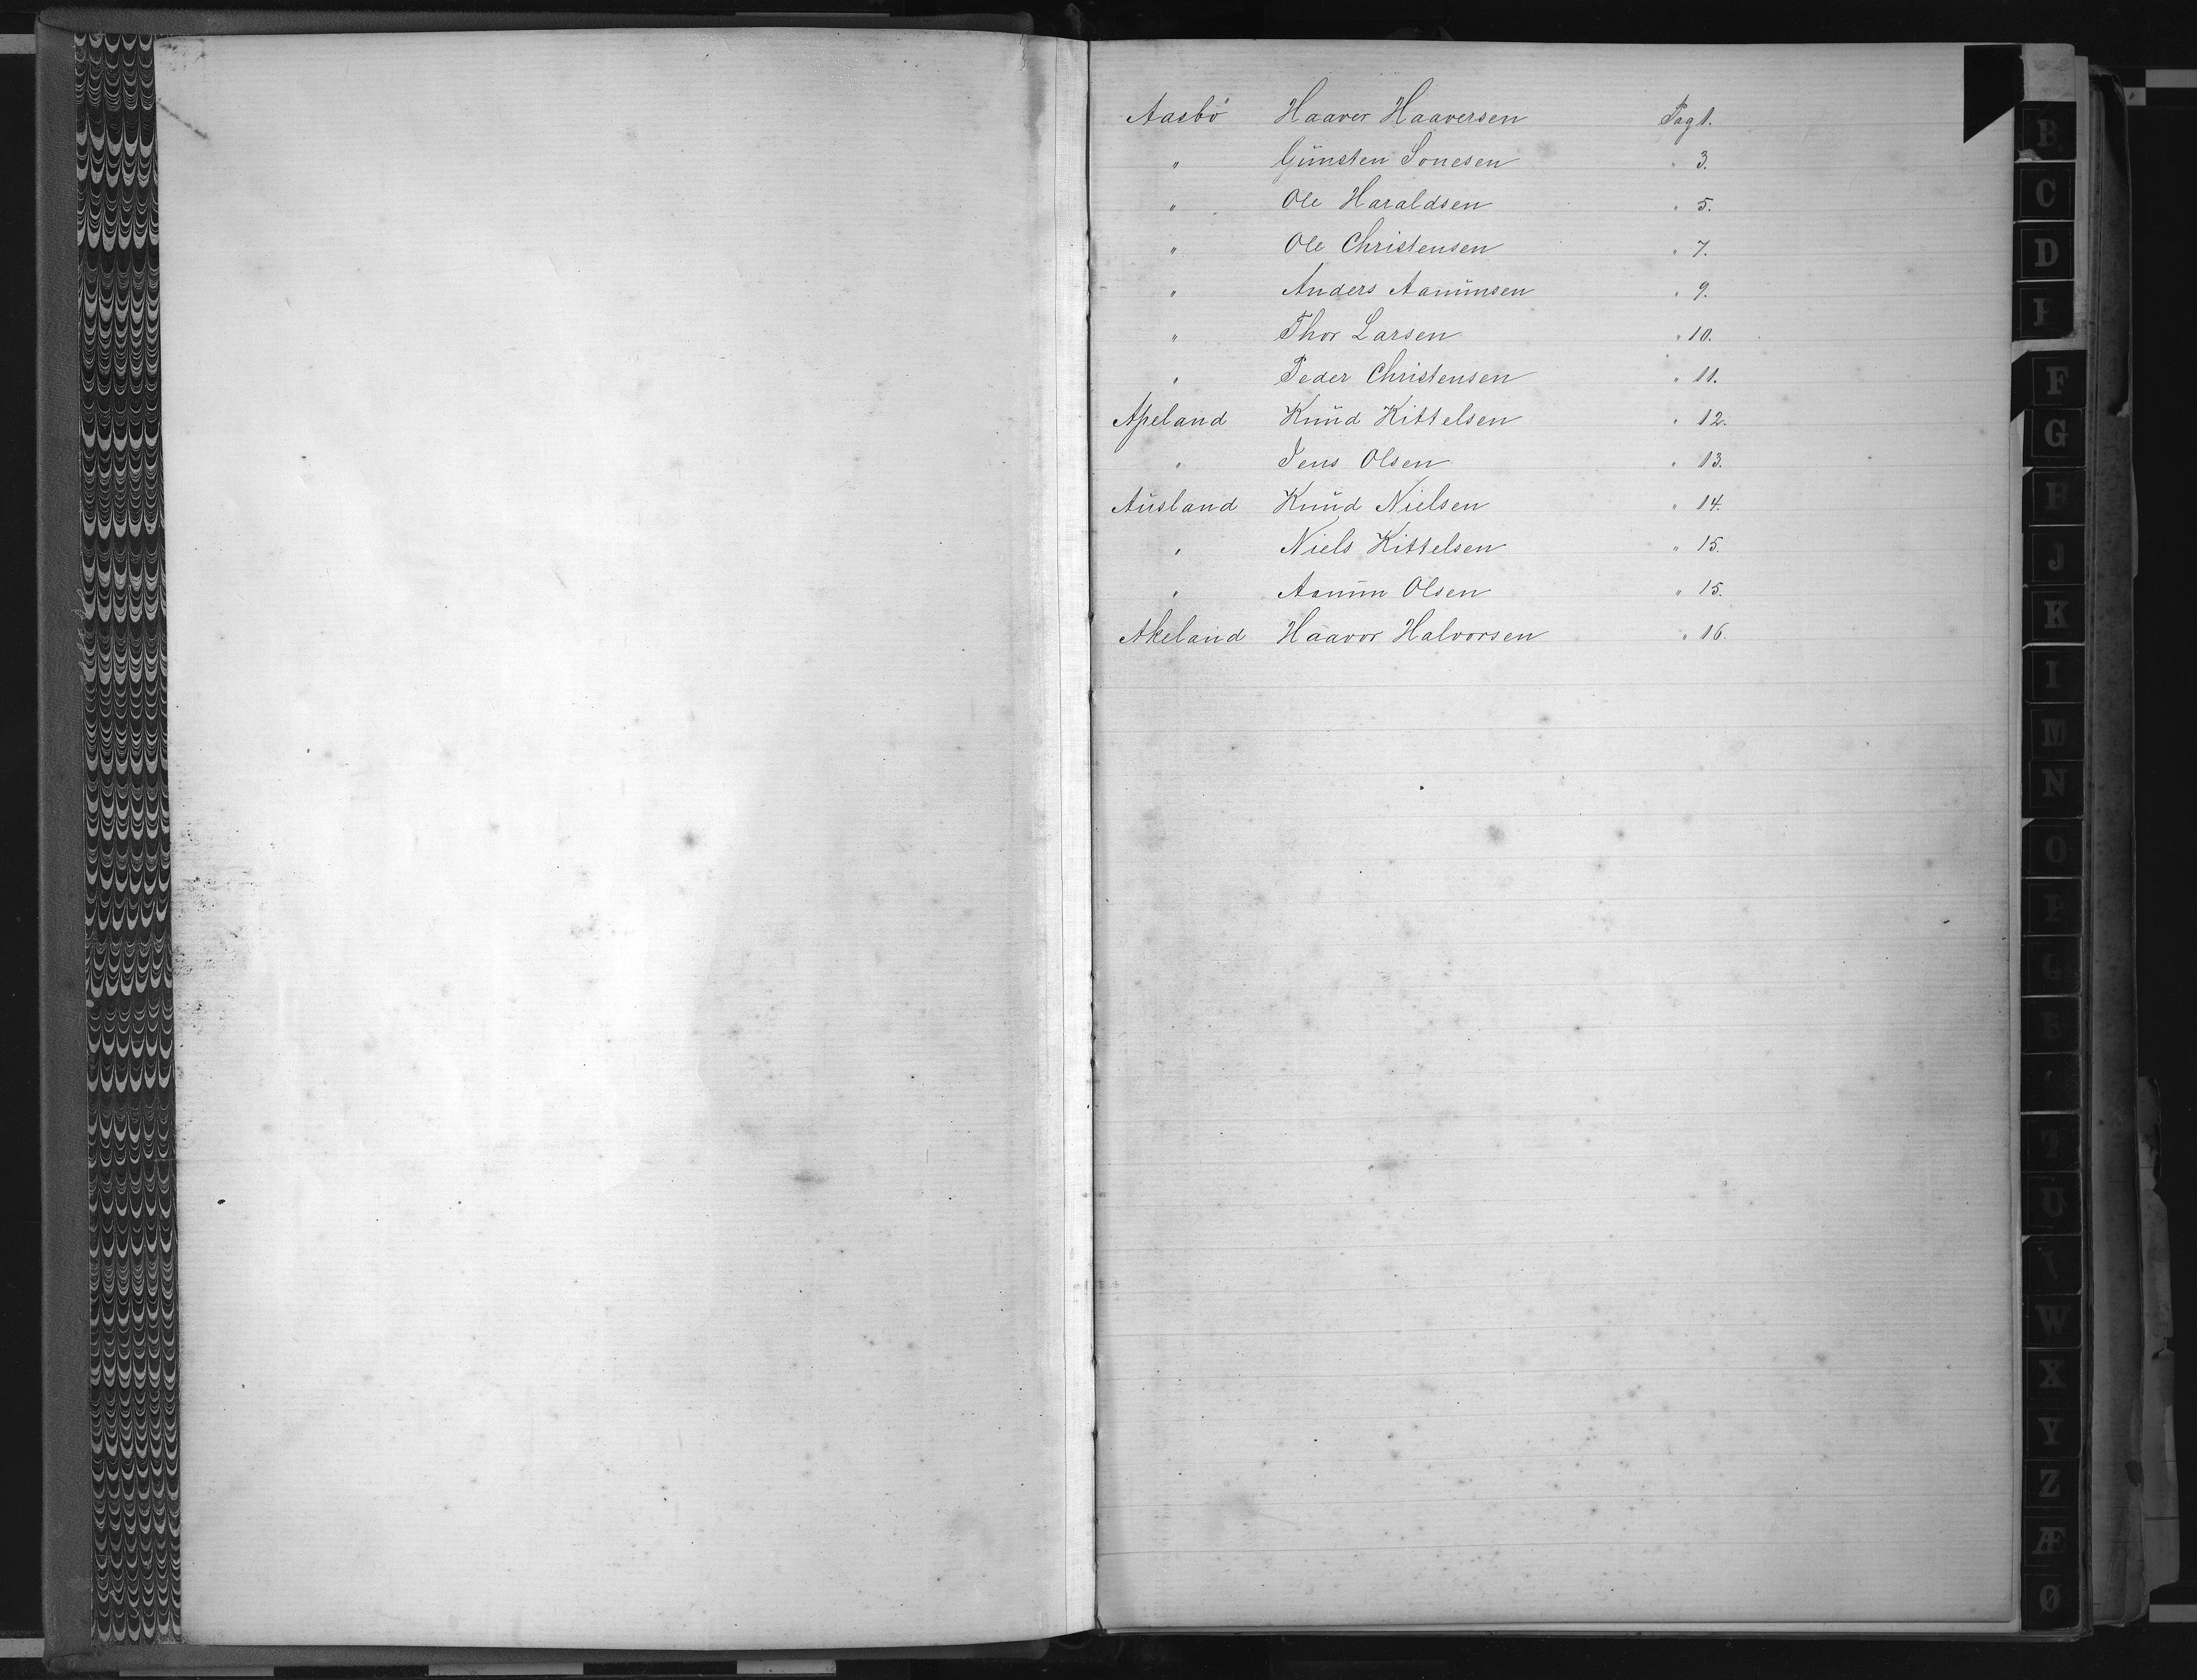 Aasbö Haaver Haaversen Pag 1.
" Günsten Sonesen " 3.
" Ole Haraldsen " 5.
" Ole Christensen " 7.
" Anders Aanünsen " 9.
" Thor Larsen " 10.
" Peder Christensen " 11.
Apeland Knüd Kittelsen " 12.
" Jens Olsen " 13.
Aüsland Knüd Nielsen " 14.
" Niels Kittelsen " 15.
" Aanün Olsen " 15.
Akeland Haavor Halvorsen " 16.
B
C
D
F
G
J
K
N
O
P
U
W
X
Y
Z
Æ
Ø